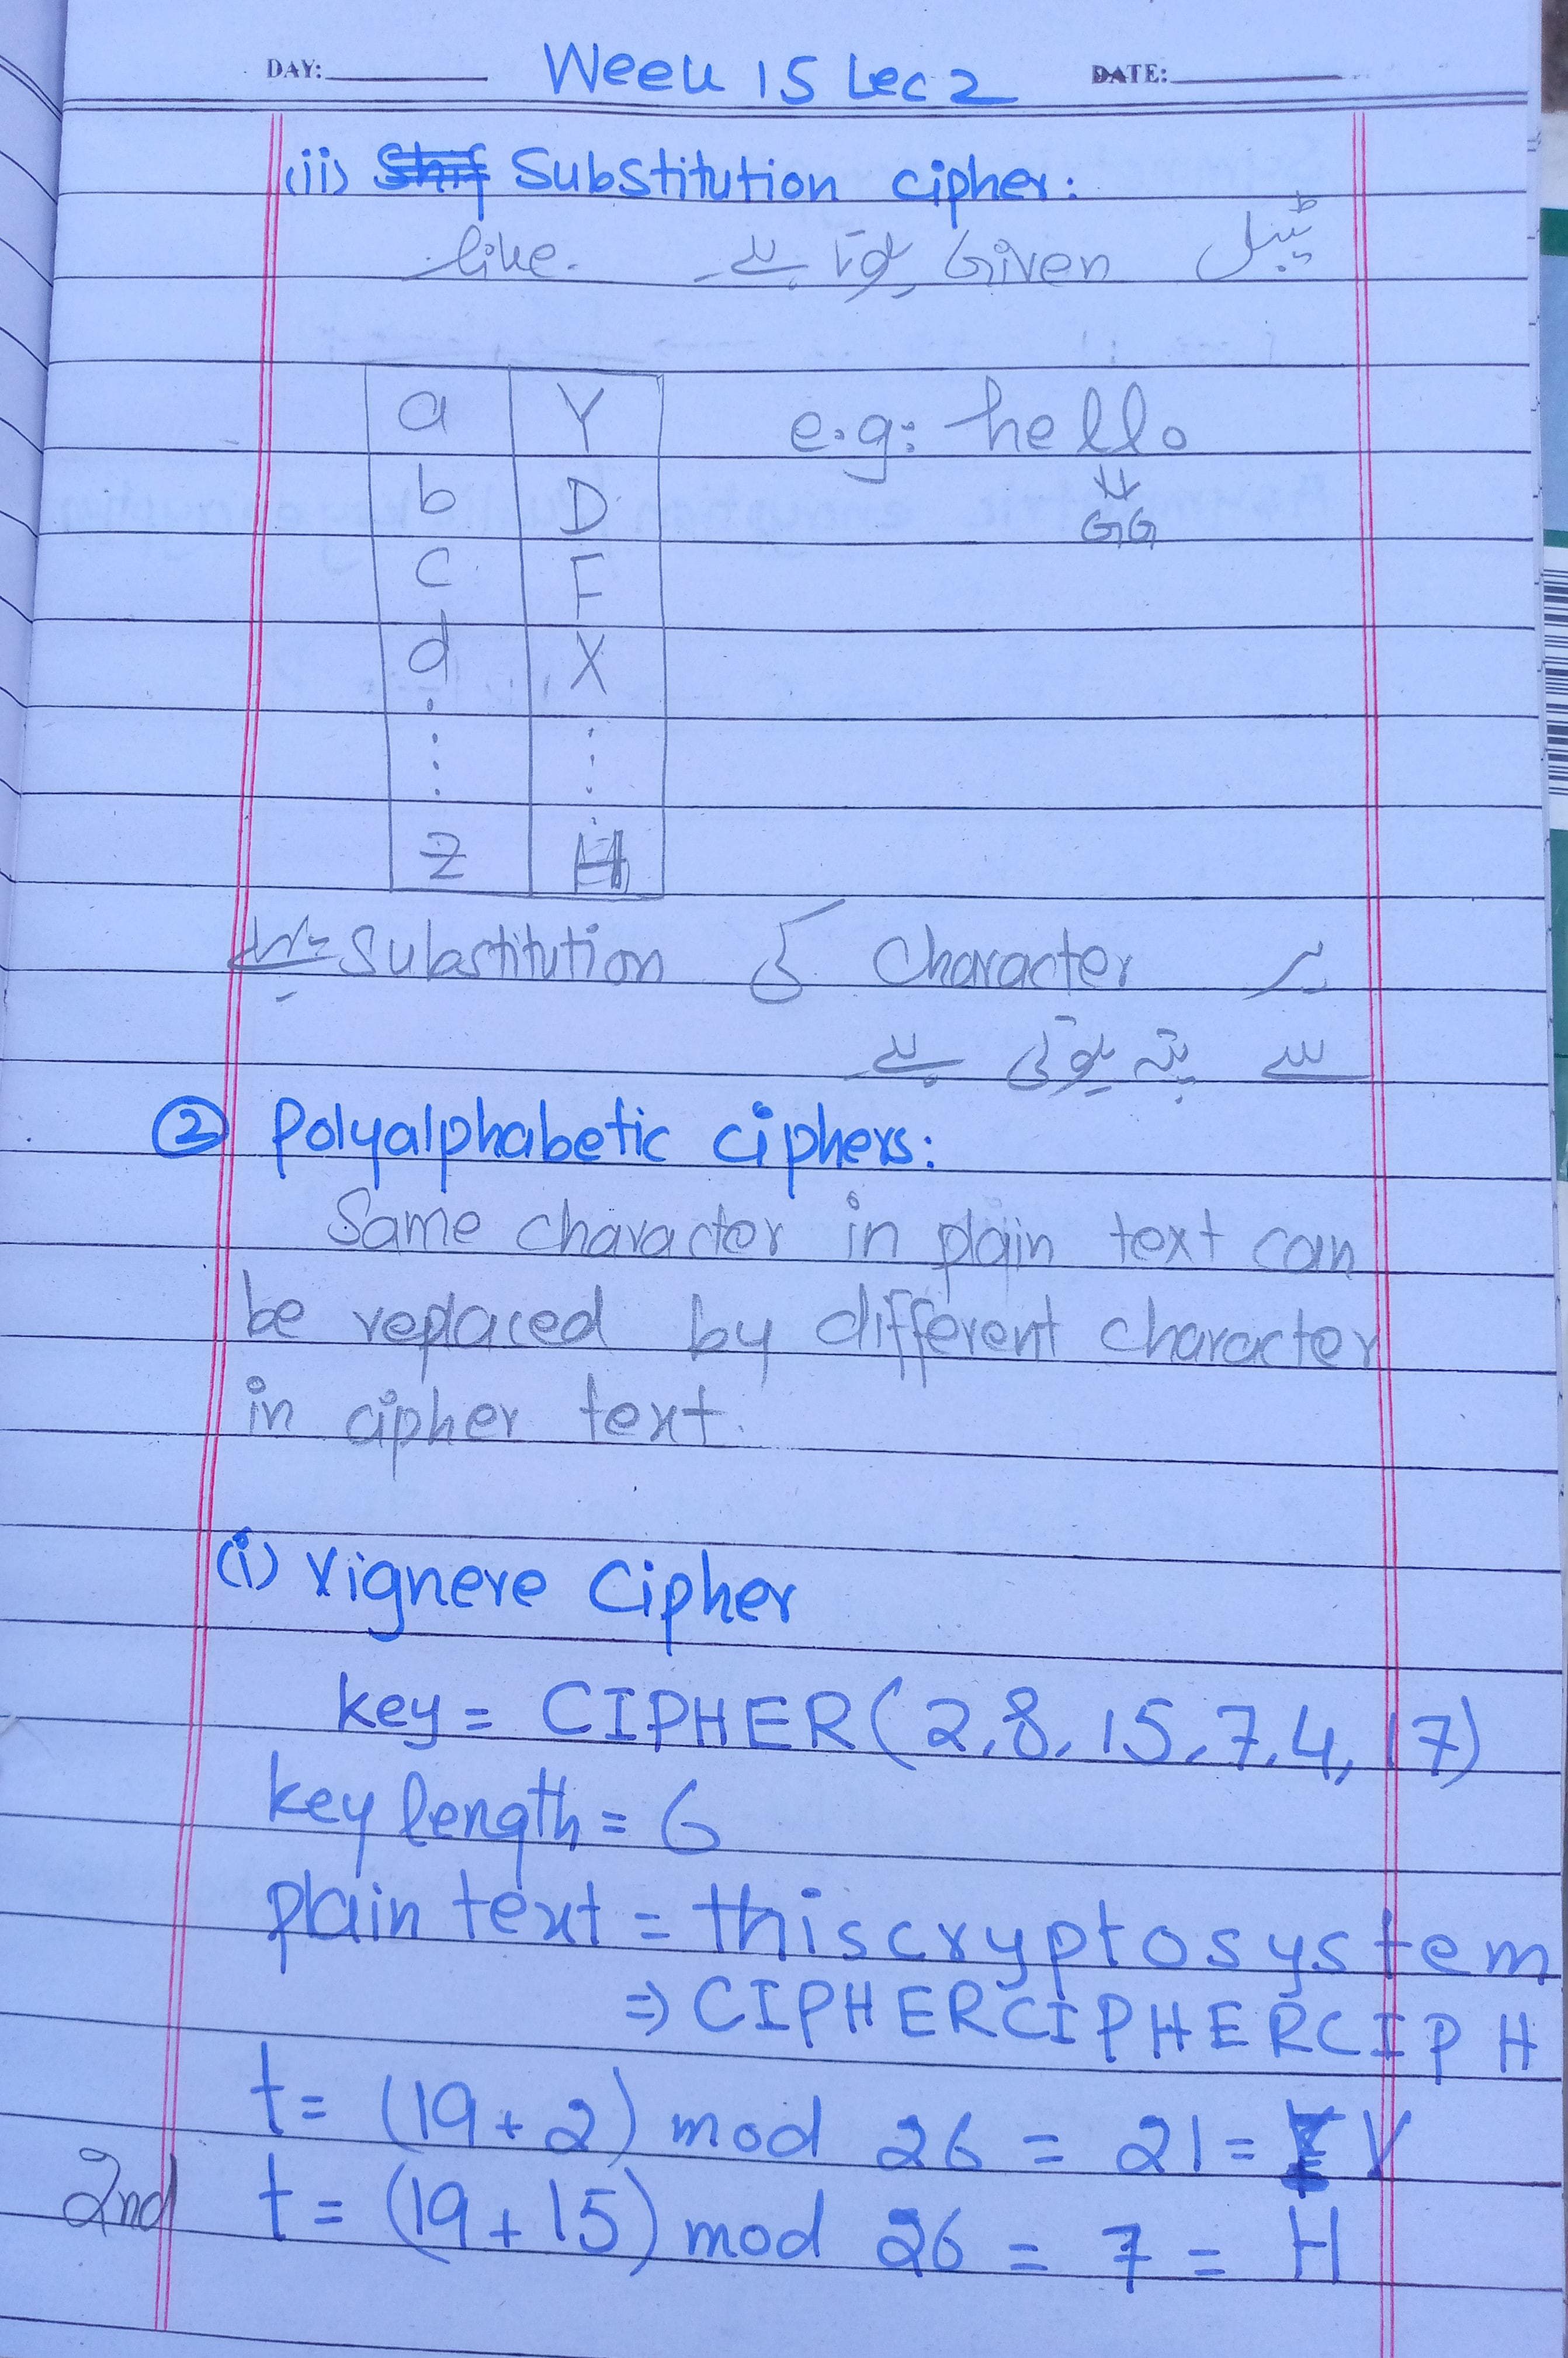 DAY: Week 15 Lec 2 DATE:
(ii) Substitution cipher:
ٹیبل Given ہوتا ہے۔ like.
a Y e.g: hello
b D GG
c F
d X
: :
z H
ہر Character کی Substitution
سے پتہ ہوتی ہے۔
② Polyalphabetic ciphers:
Same character in plain text can
be replaced by different character
in cipher text.
(i) Vignere Cipher
key = CIPHER (2,8,15,7,4,17)
key length = 6
plain text = thiscryptosystem
⇒ CIPHERCIPHERCIPH
t = (19+2) mod 26 = 21 = V
2nd t = (19+15) mod 26 = 7 = H